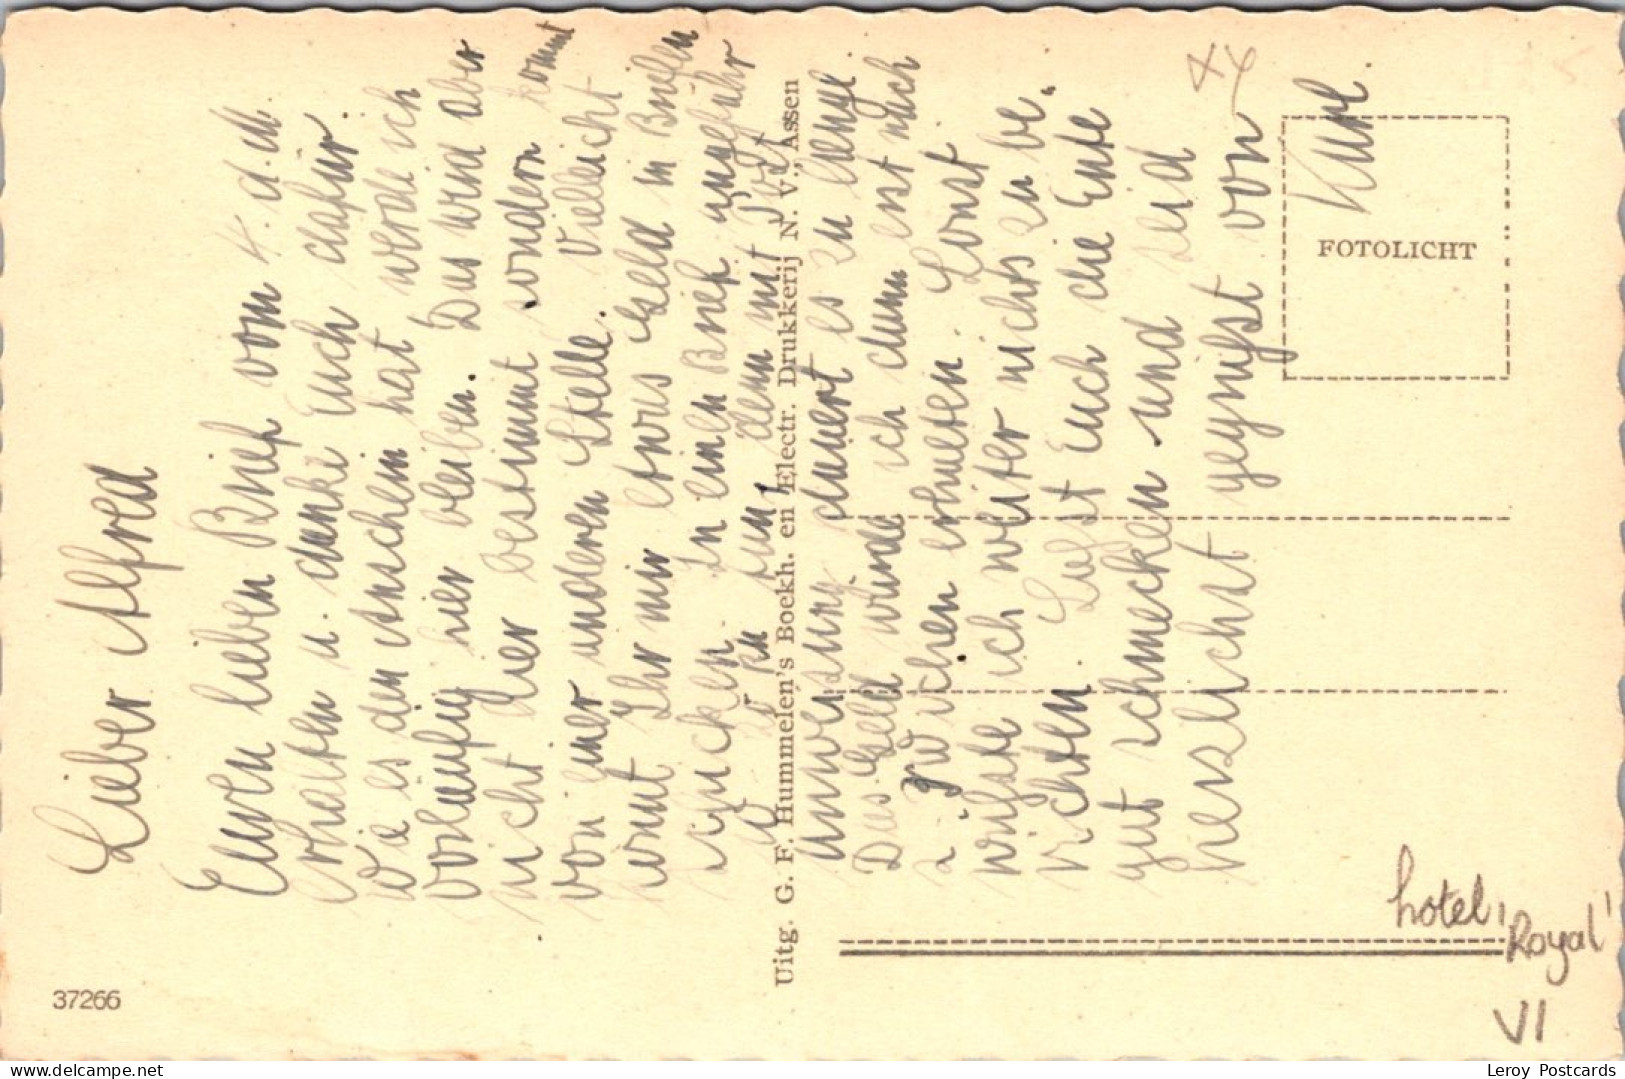 Lieber Alfred
Euren lieben Brief vom 4. d.M.
erhalten u. danke Euch dafür.
Wie es den Anschein hat werde ich
vorläufig hier bleiben. Das wird aber
nicht hier bestimmt sondern kommt
von einer anderen Stelle. Vielleicht
könnt Ihr mir etwas Geld in Briefen
schicken. In einen Brief ungefähr
zu tun, denn mit Post
anweisung dauert es zu lange.
Das Geld würde ich dann erst nach
2 Wochen erhalten. Sonst
wüßte ich weiter nichts zu be-
richten. Laßt Euch die Ente
gut schmecken und seid
herzlichst gegrüßt von
Kurt.
Uitg. G. F. Hummelen's Boekh. en Electr. Drukkerij N. V., Assen
FOTOLICHT
hotel 'Royal'
VI
37266
delcampe.net
Leroy Postcards